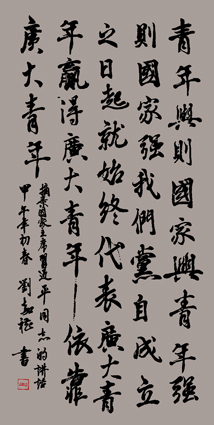 青年興則國家興青年強
則國家強我們黨自成立
之日起就始終代表廣大青
年贏得廣大青年一依靠
廣大青年
錄國家主席習近平同志的講話
甲午年初春 劉
書